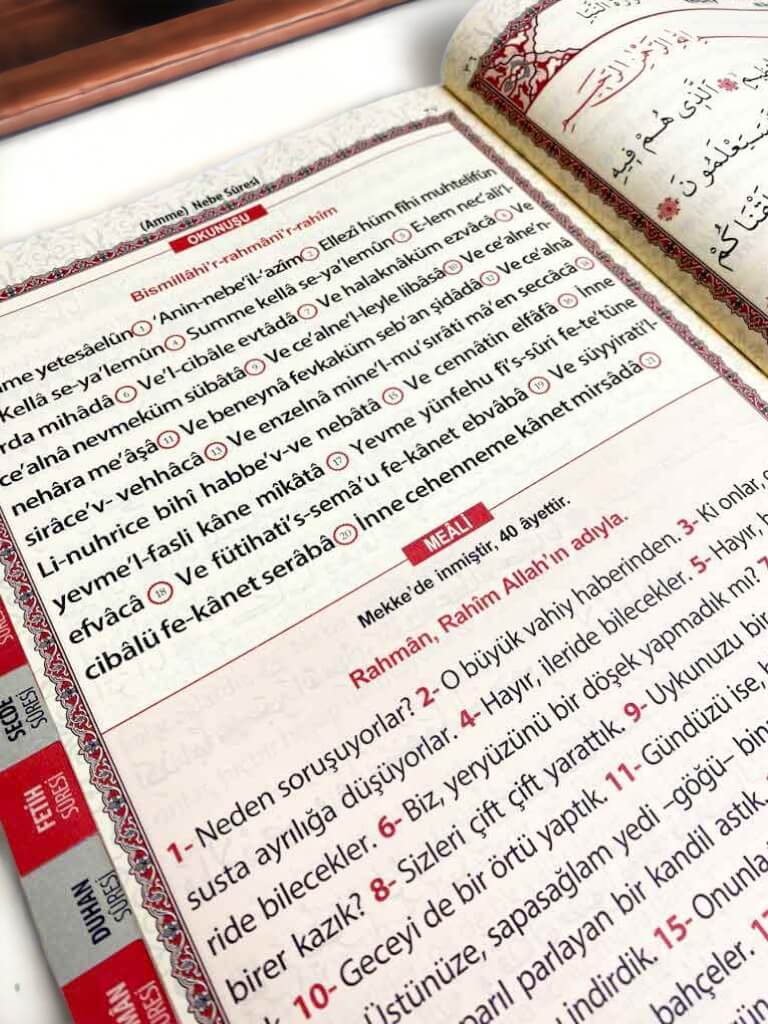 (Amme) Nebe Sûresi
OKUNUŞU
Bismillâhi'r-rahmâni'r-rahim
yetesâelûn 1 'Anin-nebe'il-'azîm 2 Ellezî hüm fîhi muhtelifûn
Kellâ se-ya'lemûn 4 Summe kellâ se-ya'lemûn 5 E-lem nec'ali'l-
rda mihâdâ 6 Ve'l-cibâle evtâdâ 7 Ve halaknâküm ezvâcâ 8 Ve
ce'alnâ nevmeküm sübâtâ 9 Ve ce'alne'l-leyle libâsâ 10 Ve ce'alne'n-
nehâra me'âşâ 11 Ve beneynâ fevkaküm seb'an şidâdâ 12 Ve ce'alnâ
sirâce'v- vehhâcâ 13 Ve enzelnâ mine'l-mu'sırâti mâ'en seccâcâ 14
Li-nuhrice bihî habbe'v-ve nebâtâ 15 Ve cennâtin elfâfâ 16 İnne
yevme'l-fasli kâne mîkâtâ 17 Yevme yünfehu fi's-sûri fe-te'tûne
efvâcâ 18 Ve fütihati's-semâ'u fe-kânet ebvâbâ 19 Ve süyyirati'l-
cibâlü fe-kânet serâbâ 20 İnne cehenneme kânet mirsâdâ 21
MEÂLİ
Mekke'de inmiştir, 40 âyettir.
Rahmân, Rahîm Allah'ın adıyla.
1- Neden soruşuyorlar? 2- O büyük vahiy haberinden. 3- Ki onlar,
susta ayrılığa düşüyorlar. 4- Hayır, ileride bilecekler. 5- Hayır,
ride bilecekler. 6- Biz, yeryüzünü bir döşek yapmadık mı?
birer kazık? 8- Sizleri çift çift yarattık. 9- Uykunuzu
10- Geceyi de bir örtü yaptık. 11- Gündüzü ise,
Üstünüze, sapasağlam yedi –göğü–
parlayan bir kandil astık.
indirdik. 15- Onunla
bahçeler.
SECDE
SÛRESİ
FETİH
SÛRESİ
DUHAN
SÛRESİ
SÛRESİ
ٱلَّذِى هُمْ فِيهِ
سَيَعْلَمُونَ